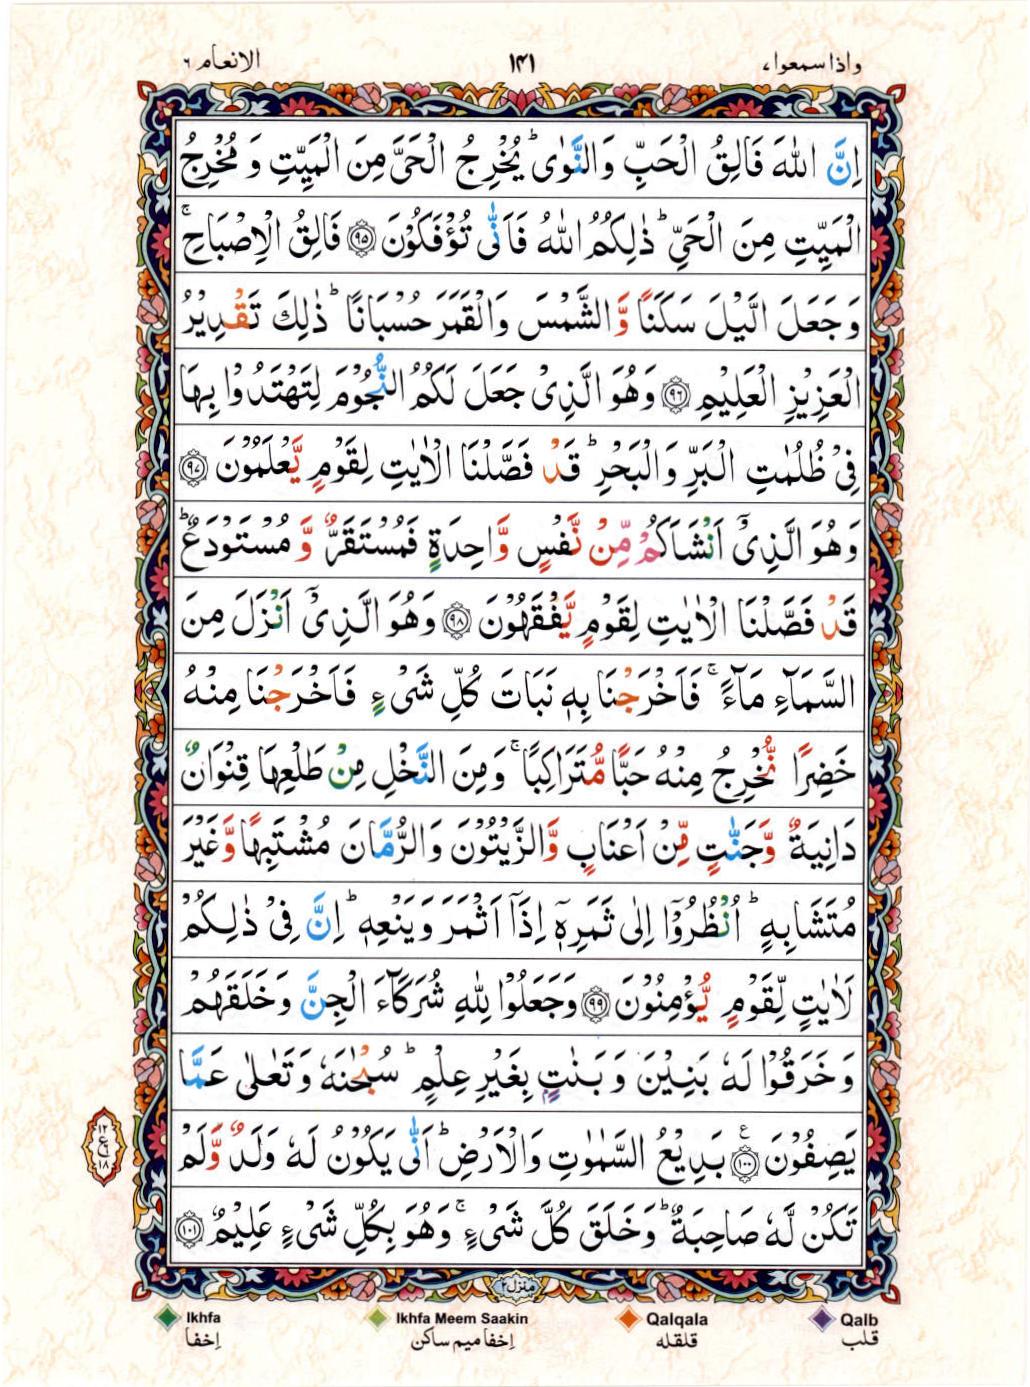 الانعام ٦
١٤١
واذا سمعوا ٧
اِنَّ اللّٰهَ فَالِقُ الْحَبِّ وَالنَّوٰىؕ يُخْرِجُ الْحَىَّ مِنَ الْمَيِّتِ وَ مُخْرِجُ
الْمَيِّتِ مِنَ الْحَىِّؕ ذٰلِكُمُ اللّٰهُ فَاَنّٰى تُؤْفَكُوْنَ ﴿۹۵﴾ فَالِقُ الْاِصْبَاحِۚ
وَ جَعَلَ الَّيْلَ سَكَنًا وَّ الشَّمْسَ وَالْقَمَرَ حُسْبَانًاؕ ذٰلِكَ تَقْدِيْرُ
الْعَزِيْزِ الْعَلِيْمِ ﴿۹۶﴾ وَهُوَ الَّذِىْ جَعَلَ لَكُمُ النُّجُوْمَ لِتَهْتَدُوْا بِهَا
فِىْ ظُلُمٰتِ الْبَرِّ وَالْبَحْرِؕ قَدْ فَصَّلْنَا الْاٰيٰتِ لِقَوْمٍ يَّعْلَمُوْنَ ﴿۹۷﴾
وَهُوَ الَّذِىْۤ اَنْشَاَكُمْ مِّنْ نَّفْسٍ وَّاحِدَةٍ فَمُسْتَقَرٌّ وَّ مُسْتَوْدَعٌؕ
قَدْ فَصَّلْنَا الْاٰيٰتِ لِقَوْمٍ يَّفْقَهُوْنَ ﴿۹۸﴾ وَهُوَ الَّذِىْۤ اَنْزَلَ مِنَ
السَّمَآءِ مَآءًۚ فَاَخْرَجْنَا بِهٖ نَبَاتَ كُلِّ شَىْءٍ فَاَخْرَجْنَا مِنْهُ
خَضِرًا نُّخْرِجُ مِنْهُ حَبًّا مُّتَرَاكِبًاۚ وَمِنَ النَّخْلِ مِنْ طَلْعِهَا قِنْوَانٌ
دَانِيَةٌ وَّجَنّٰتٍ مِّنْ اَعْنَابٍ وَّالزَّيْتُوْنَ وَالرُّمَّانَ مُشْتَبِهًا وَّغَيْرَ
مُتَشَابِهٍؕ اُنْظُرُوْۤا اِلٰى ثَمَرِهٖۤ اِذَاۤ اَثْمَرَ وَيَنْعِهٖؕ اِنَّ فِىْ ذٰلِكُمْ
لَاٰيٰتٍ لِّقَوْمٍ يُّؤْمِنُوْنَ ﴿۹۹﴾ وَجَعَلُوْا لِلّٰهِ شُرَكَآءَ الْجِنَّ وَخَلَقَهُمْ
وَ خَرَقُوْا لَهٗ بَنِيْنَ وَ بَنٰتٍۭ بِغَيْرِ عِلْمٍؕ سُبْحٰنَهٗ وَ تَعٰلٰى عَمَّا
يَصِفُوْنَ ﴿۱۰۰﴾ بَدِيْعُ السَّمٰوٰتِ وَالْاَرْضِؕ اَنّٰى يَكُوْنُ لَهٗ وَلَدٌ وَّلَمْ
تَكُنْ لَّهٗ صَاحِبَةٌؕ وَخَلَقَ كُلَّ شَىْءٍۚ وَهُوَ بِكُلِّ شَىْءٍ عَلِيْمٌ ﴿۱۰۱﴾
۱۲
ع
۱۸
منزل۲
Ikhfa
اِخفا
Ikhfa Meem Saakin
اِخفا میم ساکن
Qalqala
قلقله
Qalb
قلب